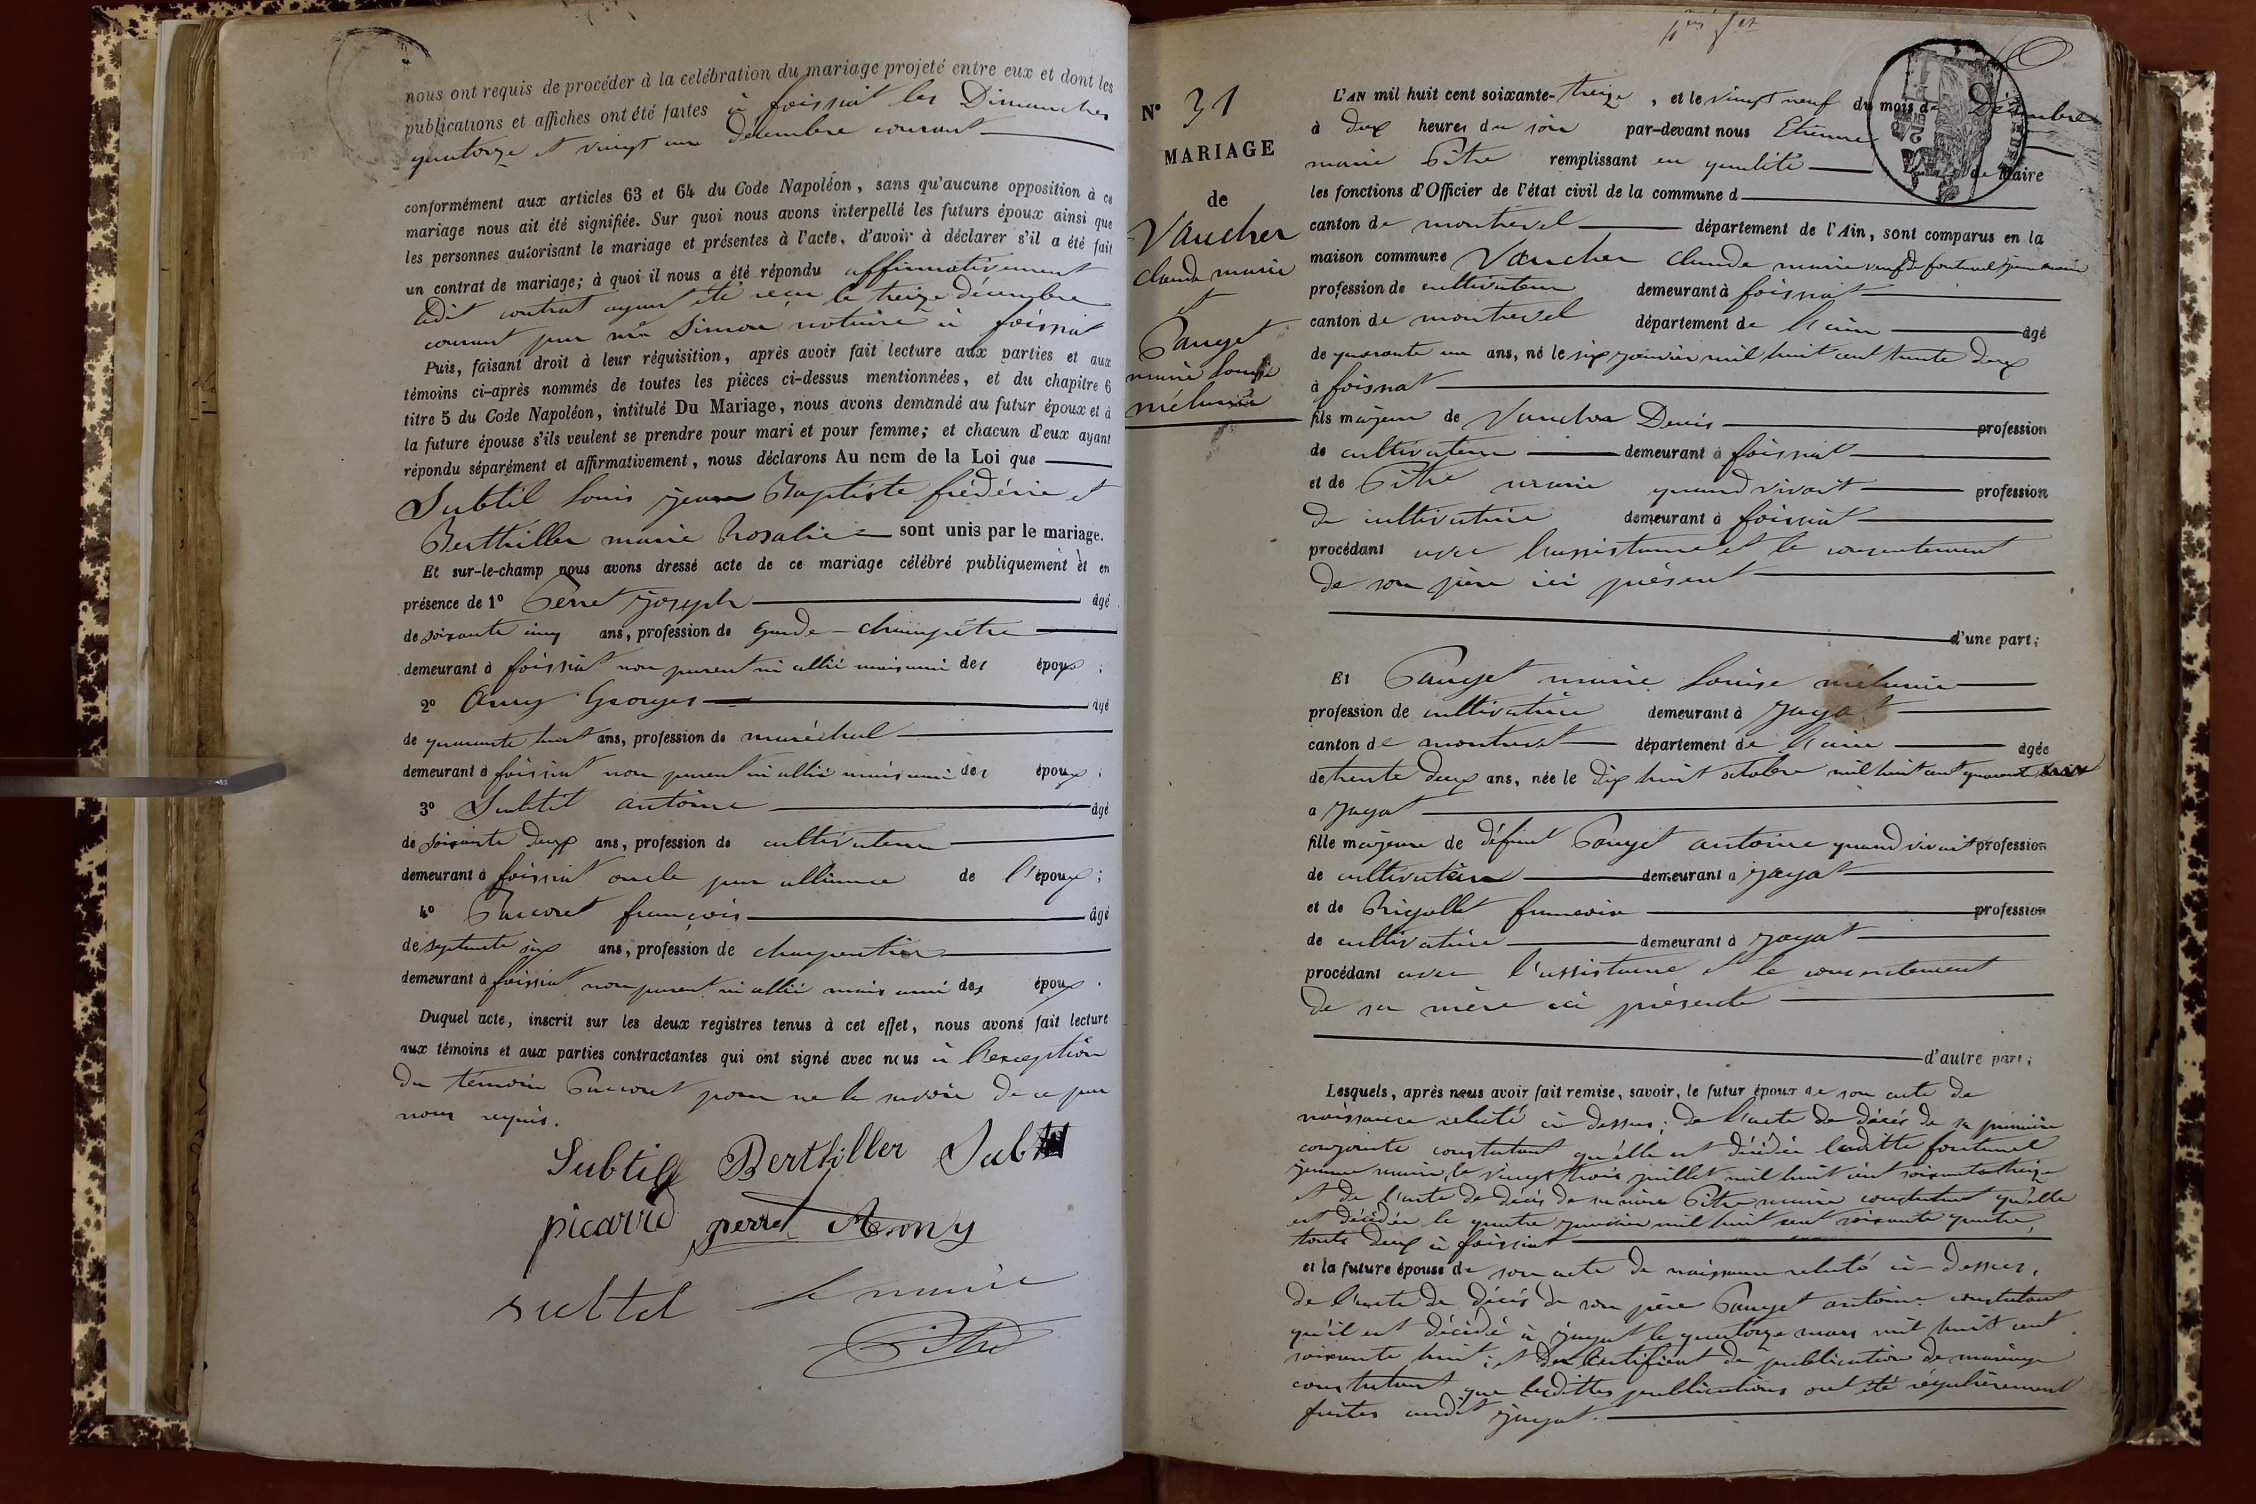 nous ont requis de procéder à la celébration du mariage projeté entre eux et dont les
publications et affiches ont été faites à foissiat les Dimanches
quatorze et vingt une décembre courant
conformément aux articles 63 et 64 du Code Napoléon, sans qu'aucune opposition à ce
mariage nous ait été signifiée. Sur quoi nous avons interpellé les futurs époux ainsi que
les personnes autorisant le mariage et présentes à l'acte, d'avoir à déclarer s'il a été fait
un contrat de mariage; à quoi il nous a été répondu affirmativement
ledit contrat ayant été reçu le treize décembre
courant par me Simon notaire à foissiat
Puis, faisant droit à leur réquisition, après avoir fait lecture aux parties et aux
témoins ci-après nommés de toutes les pièces ci-dessus mentionnées, et du chapitre 6
titre 5 du Code Napoléon, intitulé Du Mariage, nous avons demandé au futur époux et à
la future épouse s'ils veulent se prendre pour mari et pour femme; et chacun d'eux ayant
répondu séparément et affirmativement, nous déclarons Au nom de la Loi que
Subtil Louis jean Baptiste frédéric et
Berthiller marie Rosalie sont unis par le mariage.
Et sur-le-champ nous avons dressé acte de ce mariage célébré publiquement et en
présence de 1° Perret joseph âgé
de soixante cinq ans, profession de garde-champêtre
demeurant à foissiat non parent ni allié mais ami des époux;
2° Georges âgé
de quarante huit ans, profession de maréchal
demeurant à foissiat non parent ni allié mais ami des époux;
3° Subtil antoine âgé
de soixante deux ans, profession de cultivateur
demeurant à foissiat oncle par alliance de l'époux;
4° françois âgé
de septante six ans, profession de charpentier
demeurant à foissiat non parent ni allié mais ami des époux.
Duquel acte, inscrit sur les deux registres tenus à cet effet, nous avons fait lecture
aux témoins et aux parties contractantes qui ont signé avec nous à l'exception
du témoin pour ne le savoir de ce par
nous requis.
Subtil Berthiller Subtil
picard perret Amony
subtil le maire
Pitre
N° 31
MARIAGE
de
Vaucher
claude marie
et
Pauget
marie louise
mélanie
L'AN mil huit cent soixante-treize, et le vingt neuf du mois de Décembre
à deux heures du soir par-devant nous Etienne
marie Pitre remplissant en qualité de Maire
les fonctions d'Officier de l'état civil de la commune d
canton de montrevel département de l'Ain, sont comparus en la
maison commune Vaucher claude marie veuf de fontenel jeanne marie
profession de cultivateur demeurant à foissiat
canton de montrevel département de l'ain âgé
de quarante un ans, né le six janvier mil huit cent trente deux
à foissiat
fils majeur de Vaucher Denis profession
de cultivateur demeurant à foissiat
et de Pitre marie quand vivait profession
de cultivatrice demeurant à foissiat
procédant avec l'assistance et le consentement
de son père ici présent
d'une part;
Et Pauget marie louise mélanie
profession de cultivatrice demeurant à jayat
canton de montrevel département de l'ain âgée
de trente deux ans, née le dix huit octobre mil huit cent quarante
à jayat
fille majeure de défunt Pauget antoine quand vivait profession
de cultivateur demeurant à jayat
et de Rigollet francoise profession
de cultivatrice demeurant à jayat
procédant avec l'assistance et le consentement
de sa mère ici présente
d'autre part;
Lesquels, après nous avoir fait remise, savoir, le futur époux de son acte de
naissance relaté ci dessus; de l'acte de décès de sa première
conjointe constatant qu'elle est décédée laditte fontenel
jeanne marie, le vingt trois juillet mil huit cent soixante treize
et de l'acte de décès de sa mère Pitre marie constatant qu'elle
est décédée le quatre janvier mil huit cent soixante quatre,
touts deux à foissiat
et la future épouse de son acte de naissance relaté ci-dessus,
de l'acte de décès de son père Pauget antoine constatant
qu'il est décédé à jayat le quatorze mars mil huit cent
soixante huit; et du certificat de publication de mariage
constatant que lesdittes publications ont été régulièrement
faites audit jayat.